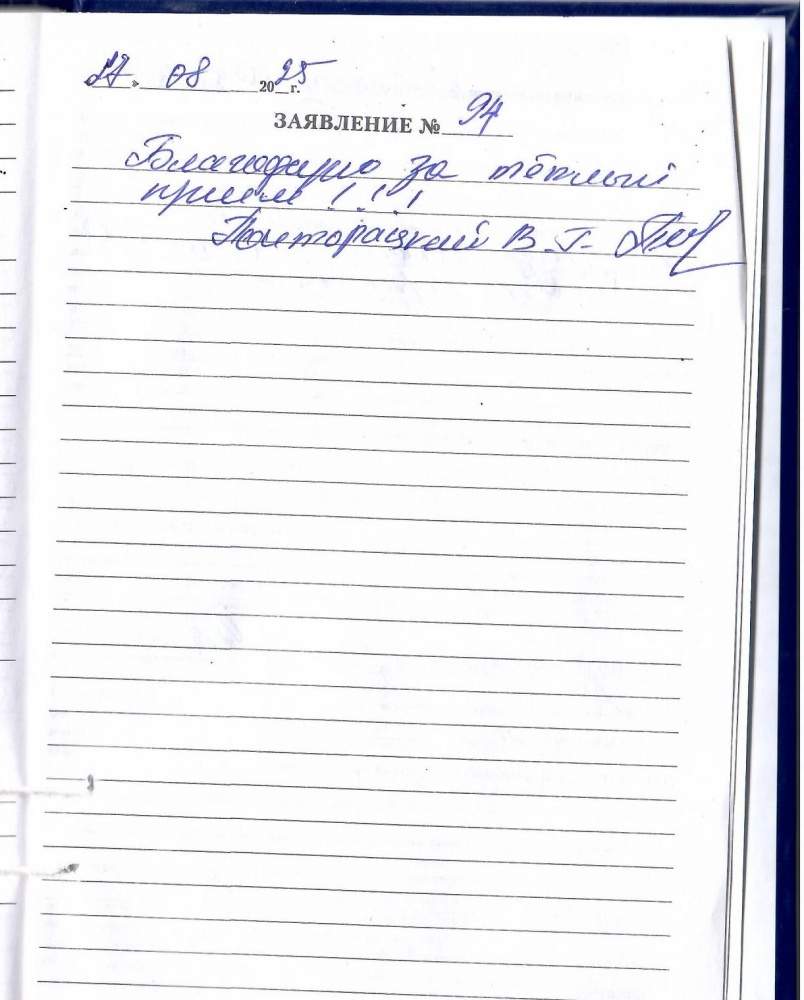 27 » 08 2025 г.
ЗАЯВЛЕНИЕ № 94
Благодарю за тёплый
приём !!!
Полторацкий В. Г.